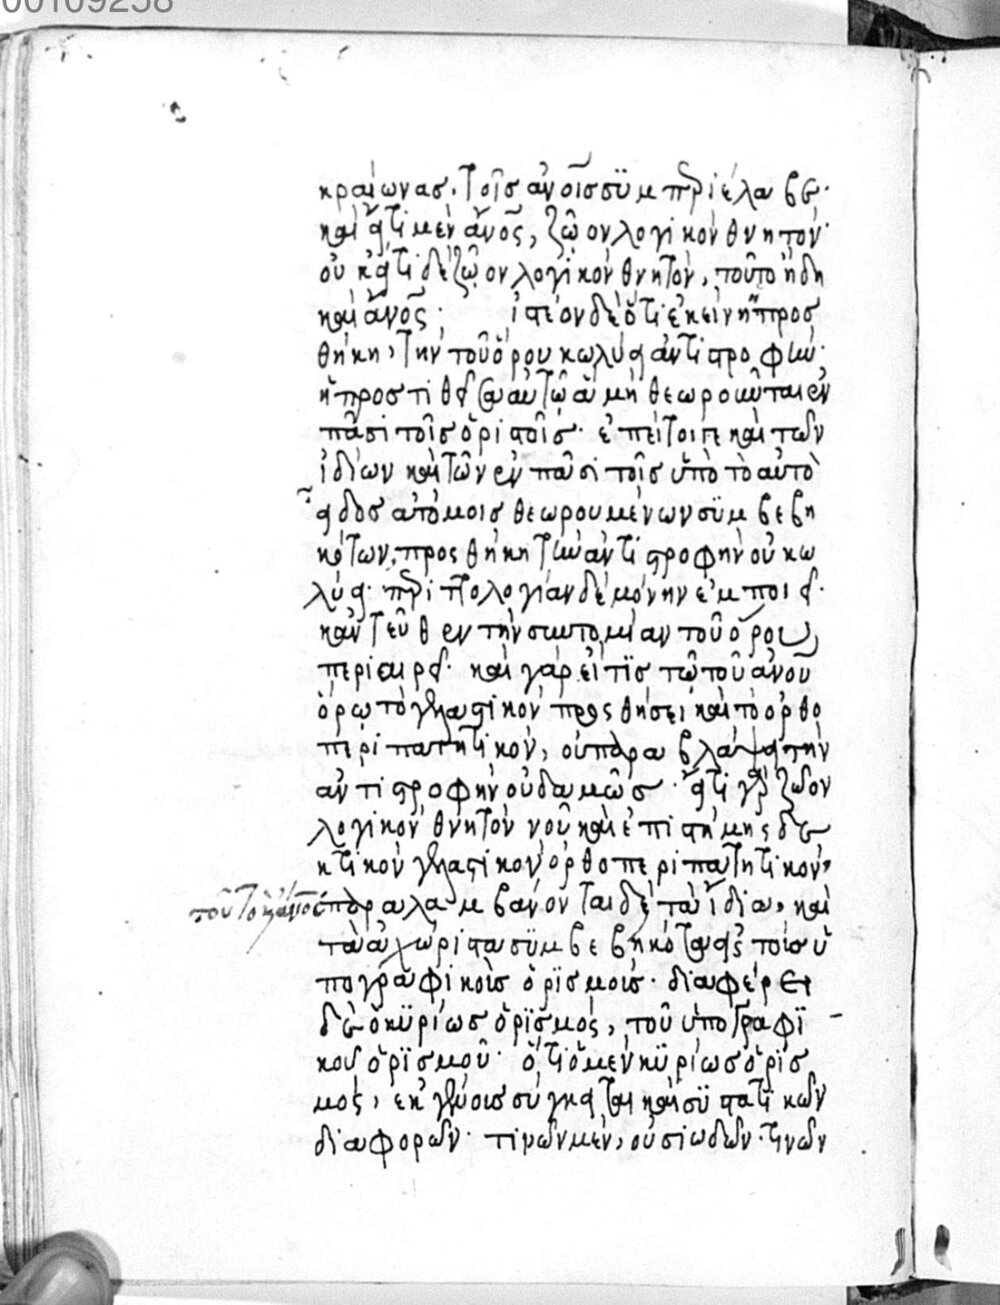 00109258
κραίωνας. τοῖς ἀνοῖς συμπεριέλαβε·
καὶ εἴ τι μὲν ἄνος, ζῶον λογικὸν θνητόν·
οὐκ εἴ τι δὲ ζῶον λογικὸν θνητὸν, τοῦτο ἤδη
καὶ ἄνος· ἰστέον δὲ ὅτι ἐκείνη ἡ προσ
θήκη, τὴν τοῦ ὅρου κωλύει ἀντιστροφὴν·
ἡ προστιθεῖσα αὐτῶ ἃ μὴ θεωροῦνται ἐν
πᾶσι τοῖς ὁριστοῖς· ἐπείτοιγε καὶ τῶν
ἰδίων καὶ τῶν ἐν πᾶσι τοῖς ὑπὸ τὸ αὐτὸ
εἶδος ἀτόμοις θεωρουμένων συμβεβη
κότων, προςθήκη τὴν ἀντιστροφὴν οὐ κω
λύει· περιττολογίαν δὲ μόνην ἐμποιεῖ·
κἀντεῦθεν τὴν συντομίαν τοῦ ὅρου
περιαιρεῖ· καὶ γὰρ εἴ τις τῶ τοῦ ἀνου
ὅρω τὸ γελαστικὸν προςθήσει καὶ τὸ ὀρθο
περιπατητικόν, οὐ παραβλάψει τὴν
ἀντιστροφὴν οὐδαμῶς· εἴ τι γὰρ ζῶον
λογικὸν θνητὸν νοῦ καὶ ἐπιστήμης δε
κτικὸν γελαστικὸν ὀρθοπεριπατητικόν,
τοῦτο καὶ ἄνος· παραλαμβάνονται δὲ τὰ ἴδια, καὶ
τὰ ἀχώριστα συμβεβηκότα εἰς τοῖς ὑ
πογραφικοῖς ὁρισμοῖς· διαφέρει
δὲ ὁ κυρίως ὁρισμός, τοῦ ὑπογραφι-
κοῦ ὁρισμοῦ· ὅτι ὁ μὲν κυρίως ὁρισ
μός, ἐκ γένους σύγκειται καὶ συστατικῶν
διαφορῶν· τινῶν μὲν, οὐσιωδῶν· τινῶν